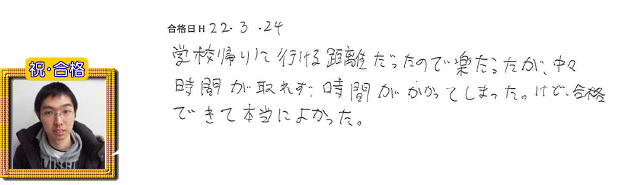 合格日 H 22.3.24
祝・合格
学校帰りに行ける距離だったので楽だったが、中々
時間が取れず、時間がかかってしまった。けど、合格
できて本当によかった。